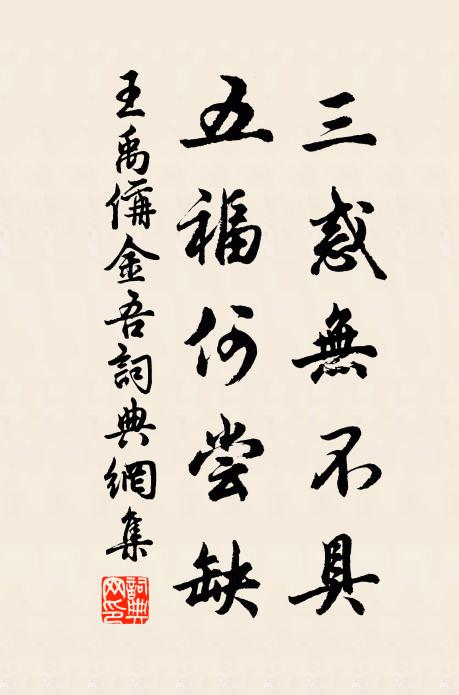 三惑無不具
五福何尝缺
王禹偁金吾詞典網集
詞典網印